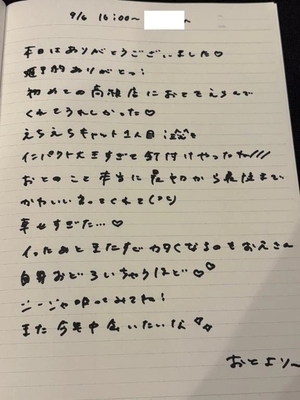 9/6 16:00〜 〜
本日はありがとうございました♡
ありがとっ!
初めての におとをえらんで
くれてうれしかった♡
えちえちキャット1人目
インパクト大すぎて釘付けやったわ///
おとのこと本当に最初から最後まで
かわいいまってくれて(°°)
幸せすぎた…♡
イったあとまたすぐカタくなるのもおえさん
自身おどろいちゃうほど♡♡
ジージャ みてね!
また今年中会いたいな
おとより〜